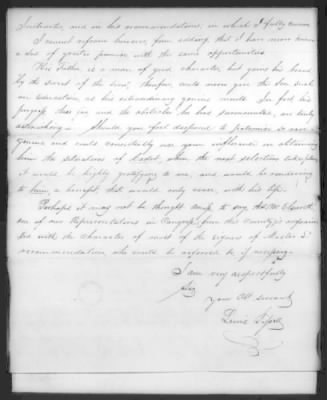 Instructor, and in his recommendations, in which I fully concur
I cannot refrain however, from adding that I have never known
a lad of greater promise with the same opportunities
His Father is a man of good character, but gains his bread
by the sweat of his brow, therefore, could never give the Son such
an Education, as his extraordinary genius merits. So far his
progress thus far, and the obstacles he has surmounted, are truly
astonishing — Should you feel disposed to patronize a rare
genius and could consistently use your influence in obtaining
him the situation of Cadet, when the next selection takes place
it would be highly gratifying to me, and would be rendering
to him, a benefit that would only cease, with his life.
Perhaps it may not be thought amiss to say that Mr
one of our Representatives in Congress, from this County is acquain
ted with the character of most of the signers of Master
recommendation who could be referred to if necessary
I am very respectfully
Sir
your Obt servant
Lewis